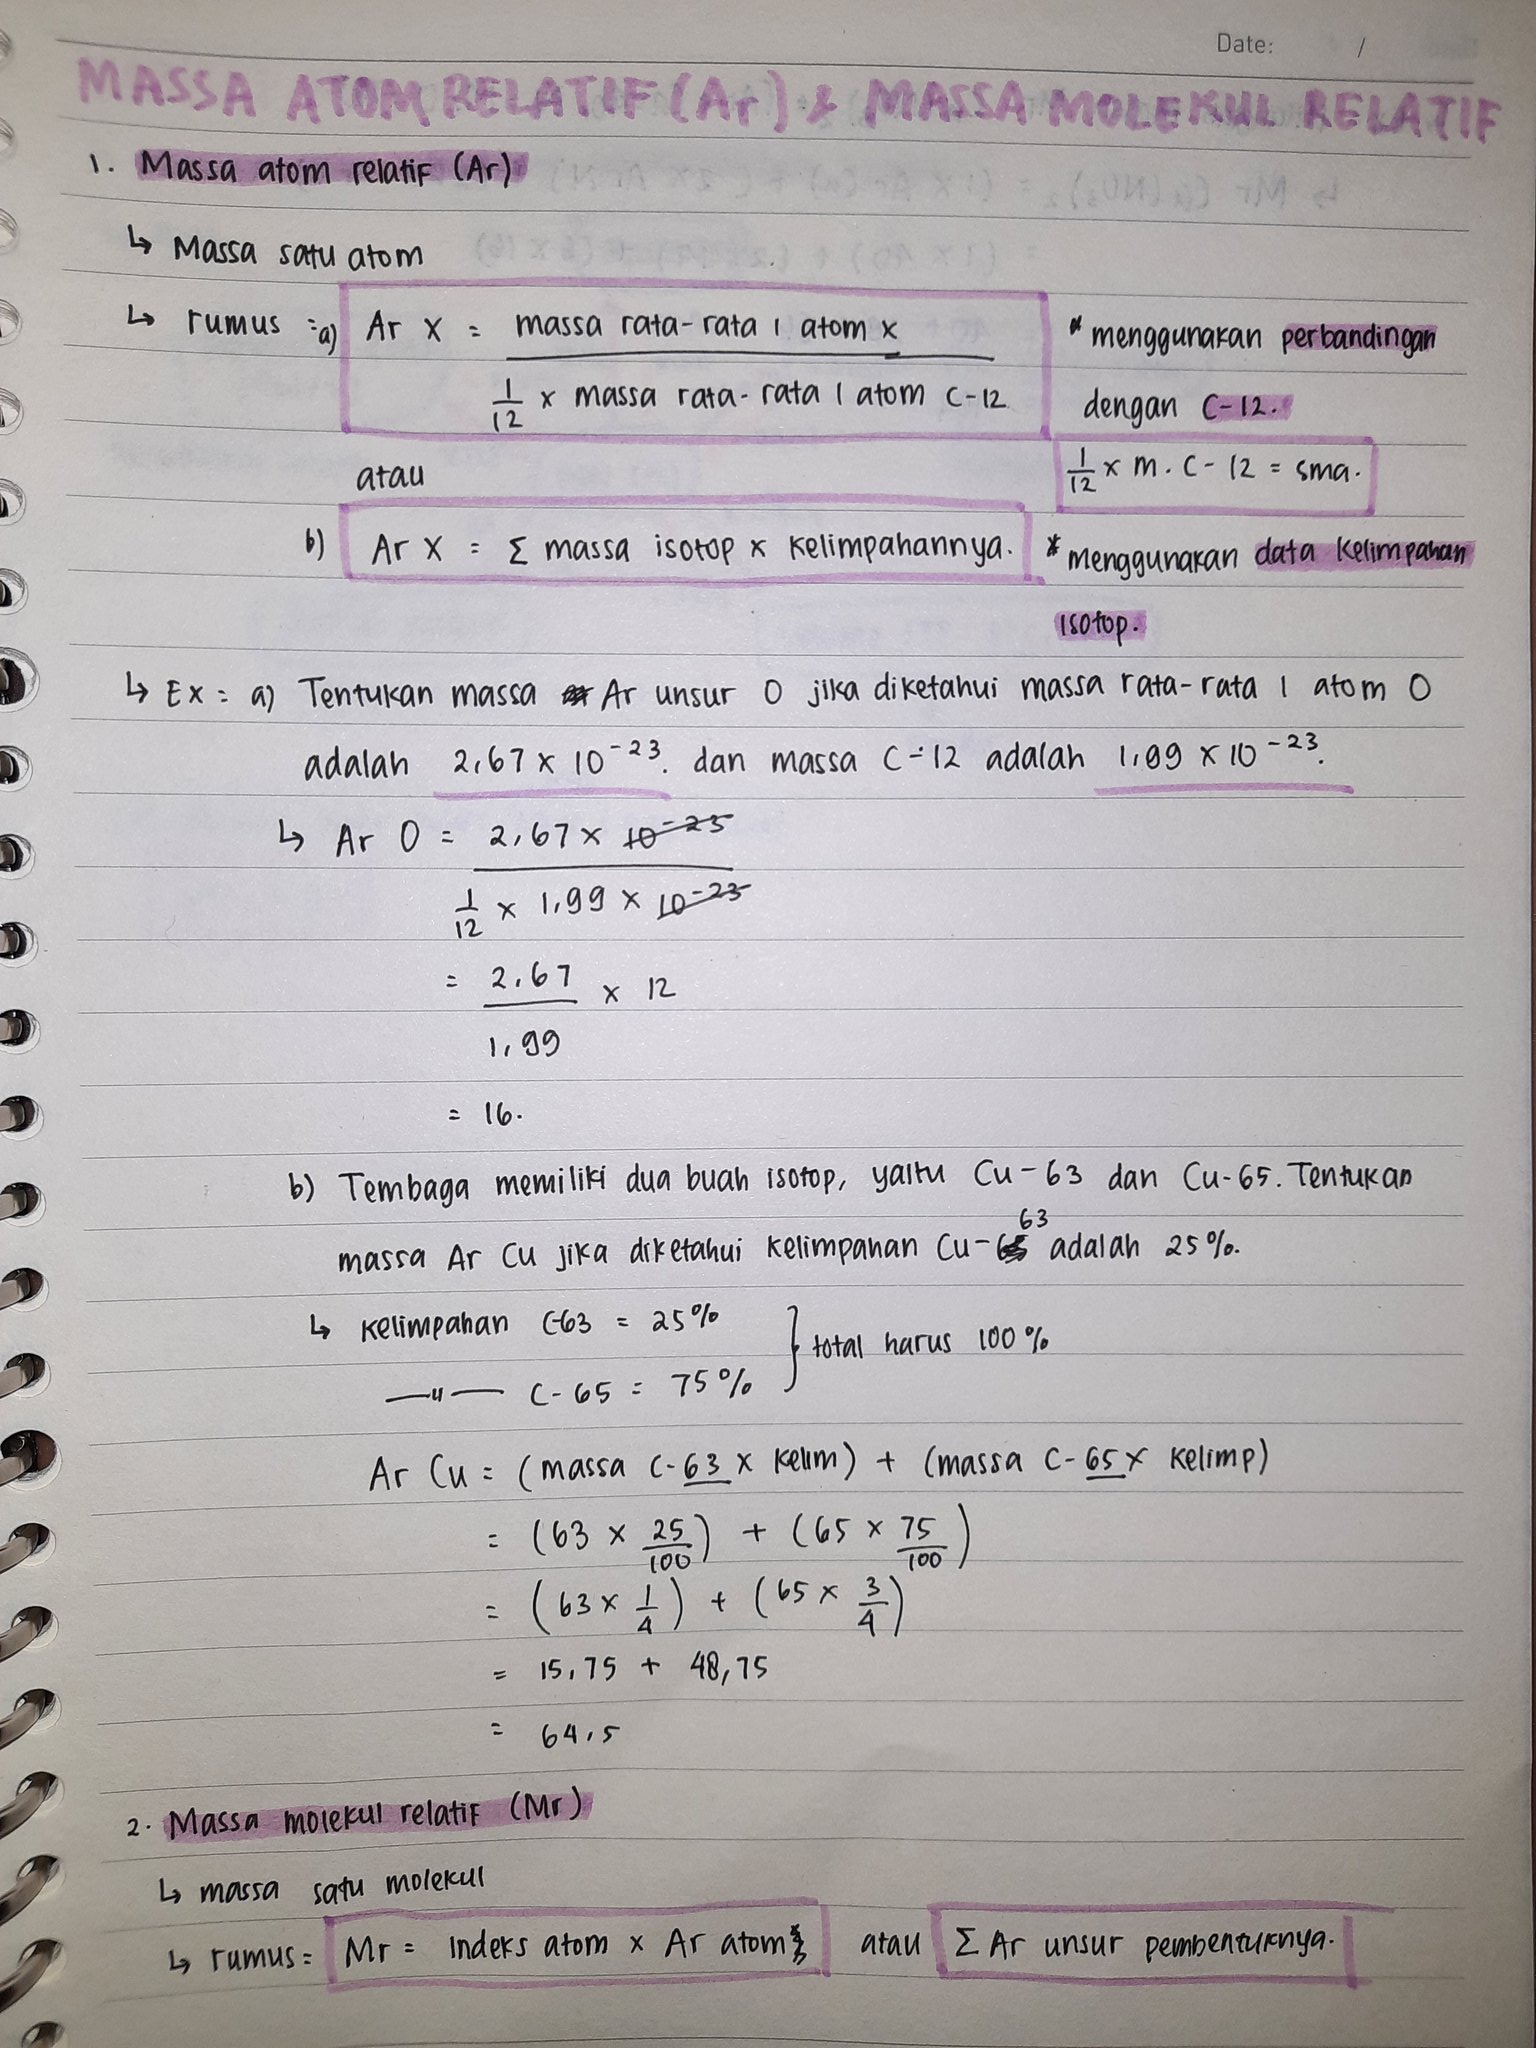 Date: /
MASSA ATOM RELATIF (Ar) & MASSA MOLEKUL RELATIF
1. Massa atom relatif (Ar)
↳ Massa satu atom
↳ rumus = a) Ar X = massa rata-rata 1 atom x
1/12 x massa rata-rata 1 atom C-12
* menggunakan perbandingan
dengan C-12.
atau
1/12 x m. C-12 = sma.
b) Ar X = Σ massa isotop x kelimpahannya.
* menggunakan data kelimpahan
isotop.
↳ Ex = a) Tentukan massa Ar unsur O jika diketahui massa rata-rata 1 atom O
adalah 2,67 x 10⁻²³. dan massa C-12 adalah 1,99 x 10⁻²³.
↳ Ar O = 2,67 x 10⁻²³
1/12 x 1,99 x 10⁻²³
= 2,67 x 12
1,99
= 16.
b) Tembaga memiliki dua buah isotop, yaitu Cu-63 dan Cu-65. Tentukan
massa Ar Cu jika diketahui kelimpahan Cu-63 adalah 25%.
↳ kelimpahan C-63 = 25%
—"— C-65 = 75%
} total harus 100%
Ar Cu = (massa C-63 x kelim) + (massa C-65 x kelimp)
= (63 x 25/100) + (65 x 75/100)
= (63 x 1/4) + (65 x 3/4)
= 15,75 + 48,75
= 64,5
2. Massa molekul relatif (Mr)
↳ massa satu molekul
↳ rumus = Mr = indeks atom x Ar atom atau Σ Ar unsur pembentuknya.